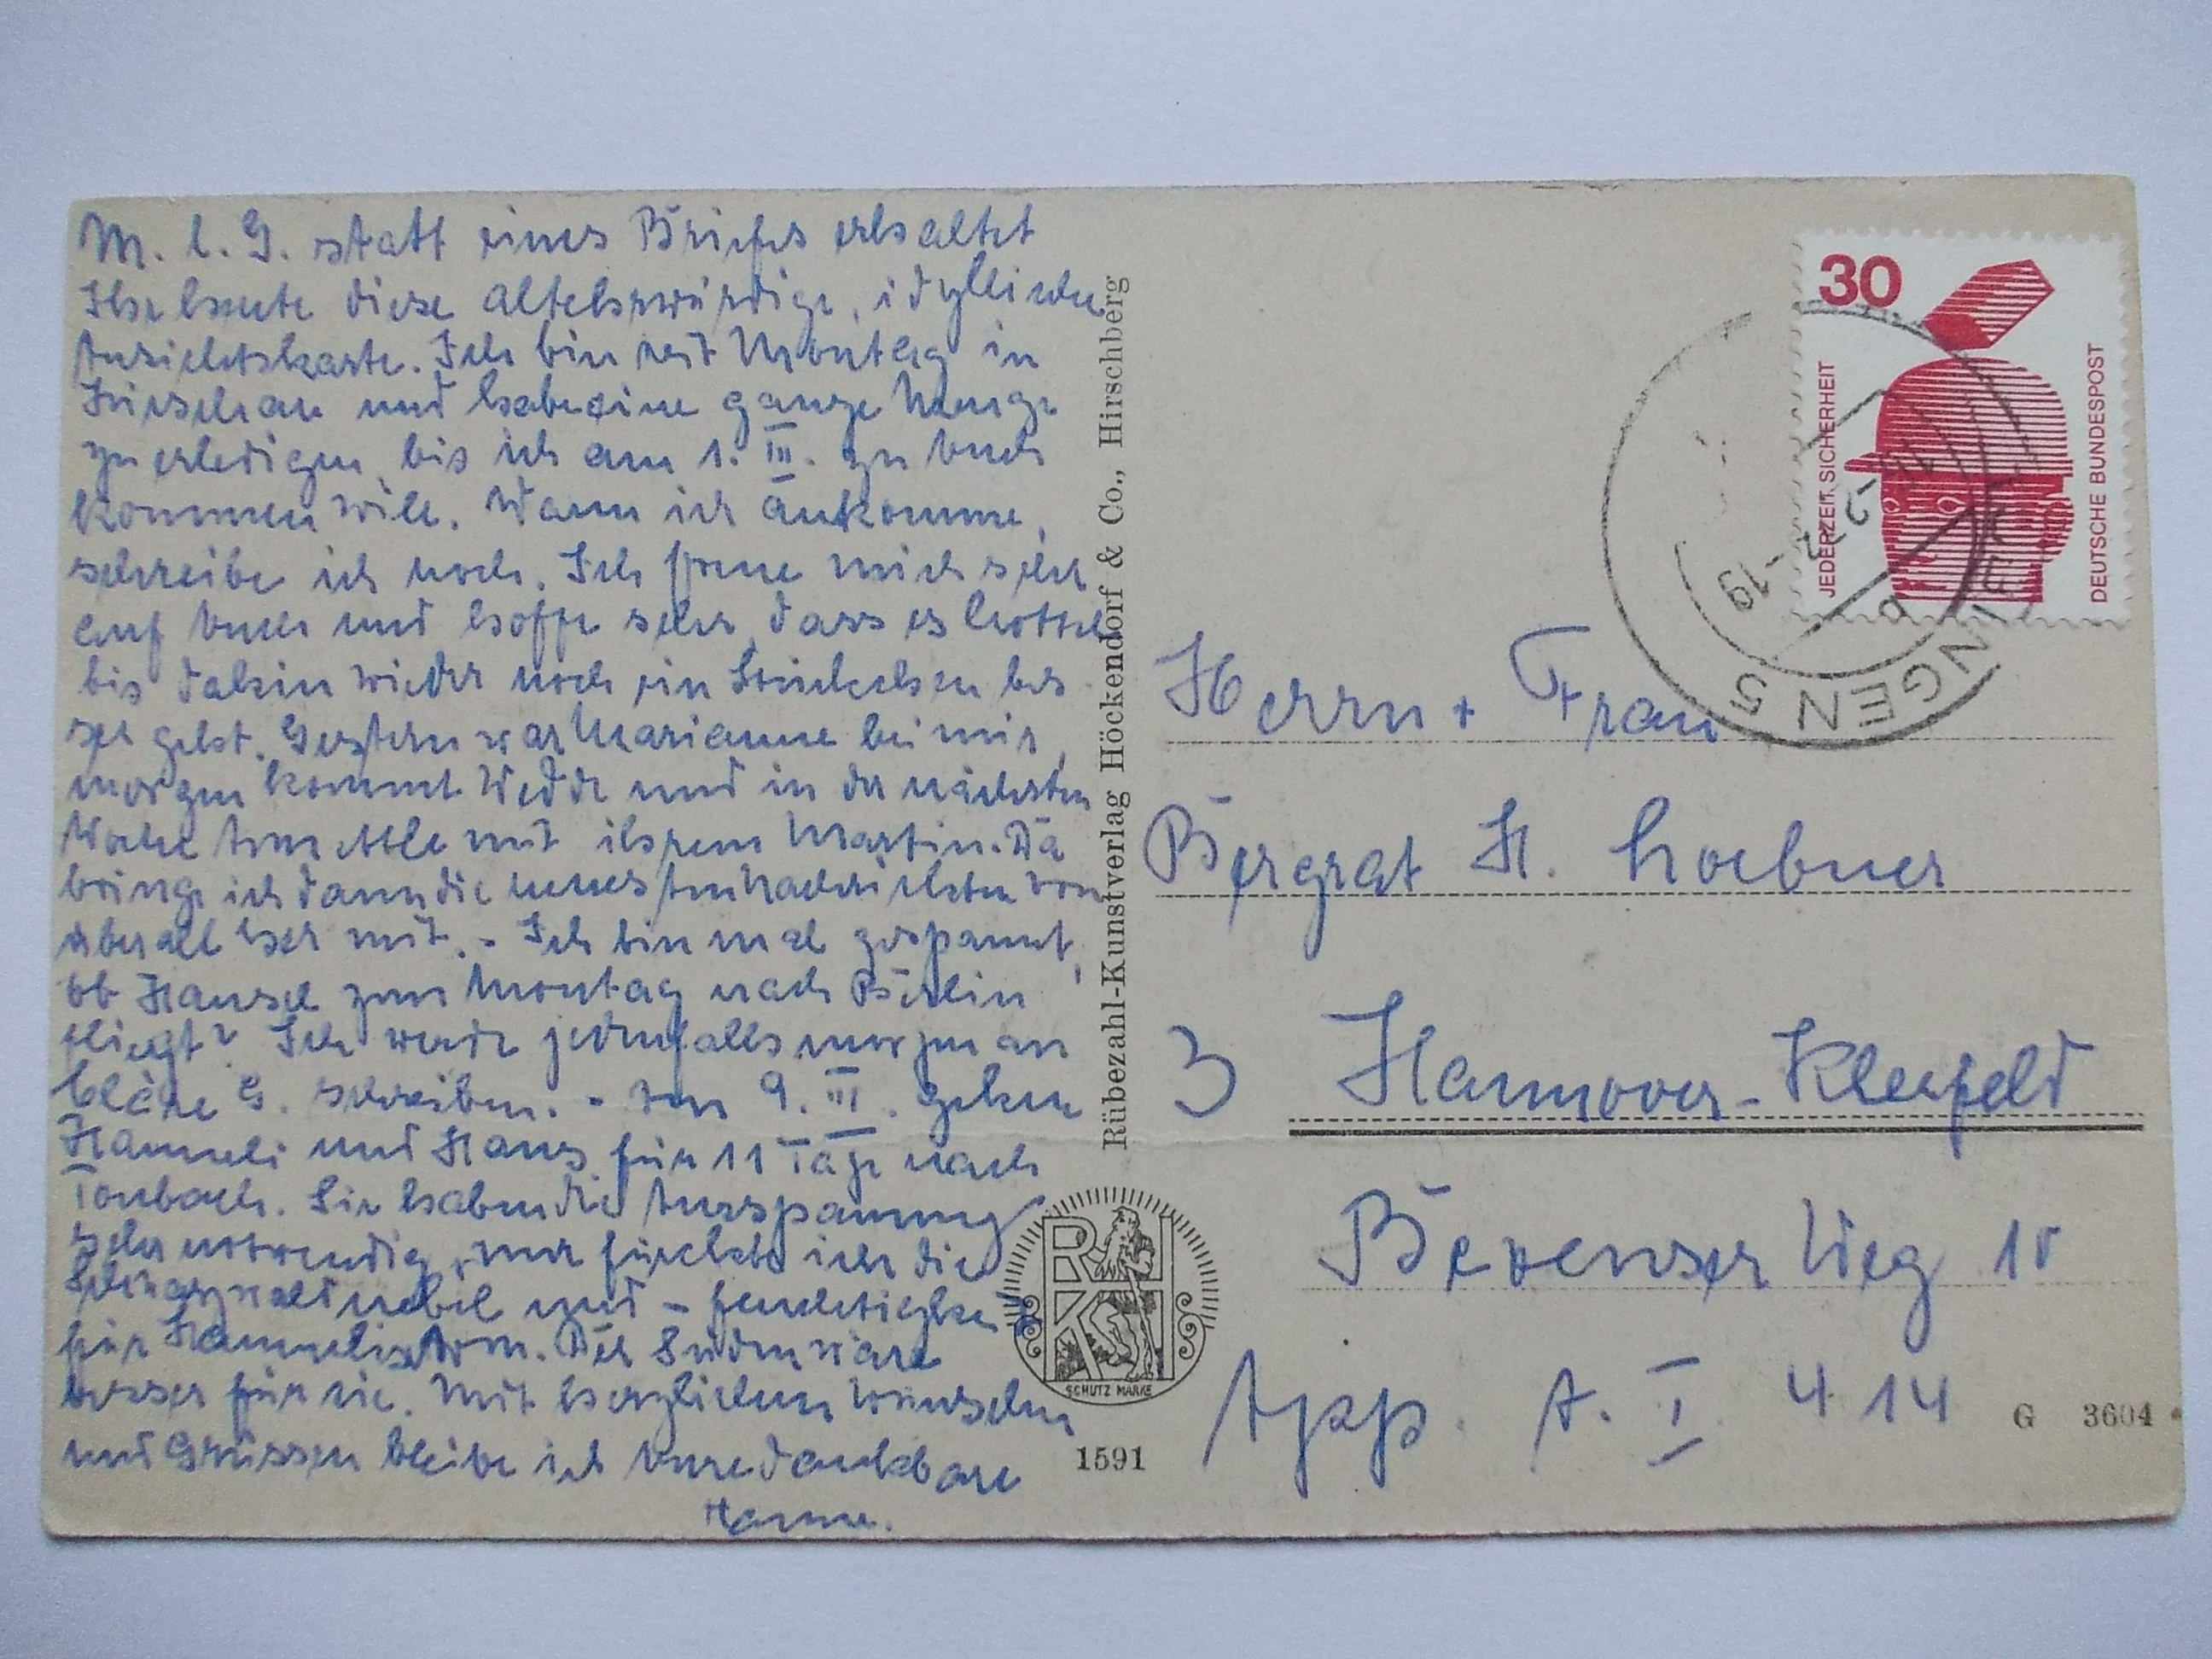 M. l. G. statt eines Briefes erhaltet
Ihr heute diese altehrwürdige, idyllische
Ansichtskarte. Ich bin seit Montag in
Hirschau und habe eine ganze Menge
zu erledigen, bis ich am 1. III. zu Euch
kommen will. Wann ich ankomme,
schreibe ich noch. Ich freue mich sehr
auf Euch und hoffe sehr, dass es Lottel
bis dahin wieder noch ein Stückchen bes
ser geht. Gestern war Marianne bei mir,
morgen kommt Wedde und in der nächsten
Woche mit ihrem Martin. Da
bringe ich dann die neuesten Nachrichten von
überall her mit. - Ich bin mal gespannt,
ob Hansel zum Montag nach Berlin
fliegt? Ich werde jedenfalls morgen an
Cläre G. schreiben. - Am 9. III. gehen
Hanneli und Hans für 11 Tage nach
Tonbach. Sie haben die Ausspannung
sehr notwendig, nur fürchte ich die
Schwarzwaldnebel und - feuchtigkeit
für Hannelis Arm. Der Süden wäre
besser für sie. Mit herzlichen Wünschen
und Grüssen bleibe ich Eure dankbare
Hanne.
Rübezahl-Kunstverlag Höckendorf & Co., Hirschberg
RHKH
SCHUTZ MARKE
1591
30
JEDERZEIT SICHERHEIT
DEUTSCHE BUNDESPOST
NGEN 5
-2.
-19
b
Herrn + Frau
Bergrat H. Loebner
3 Hannover-Kleefeld
Bevenser Weg 10
App. A. I 414
G 3604